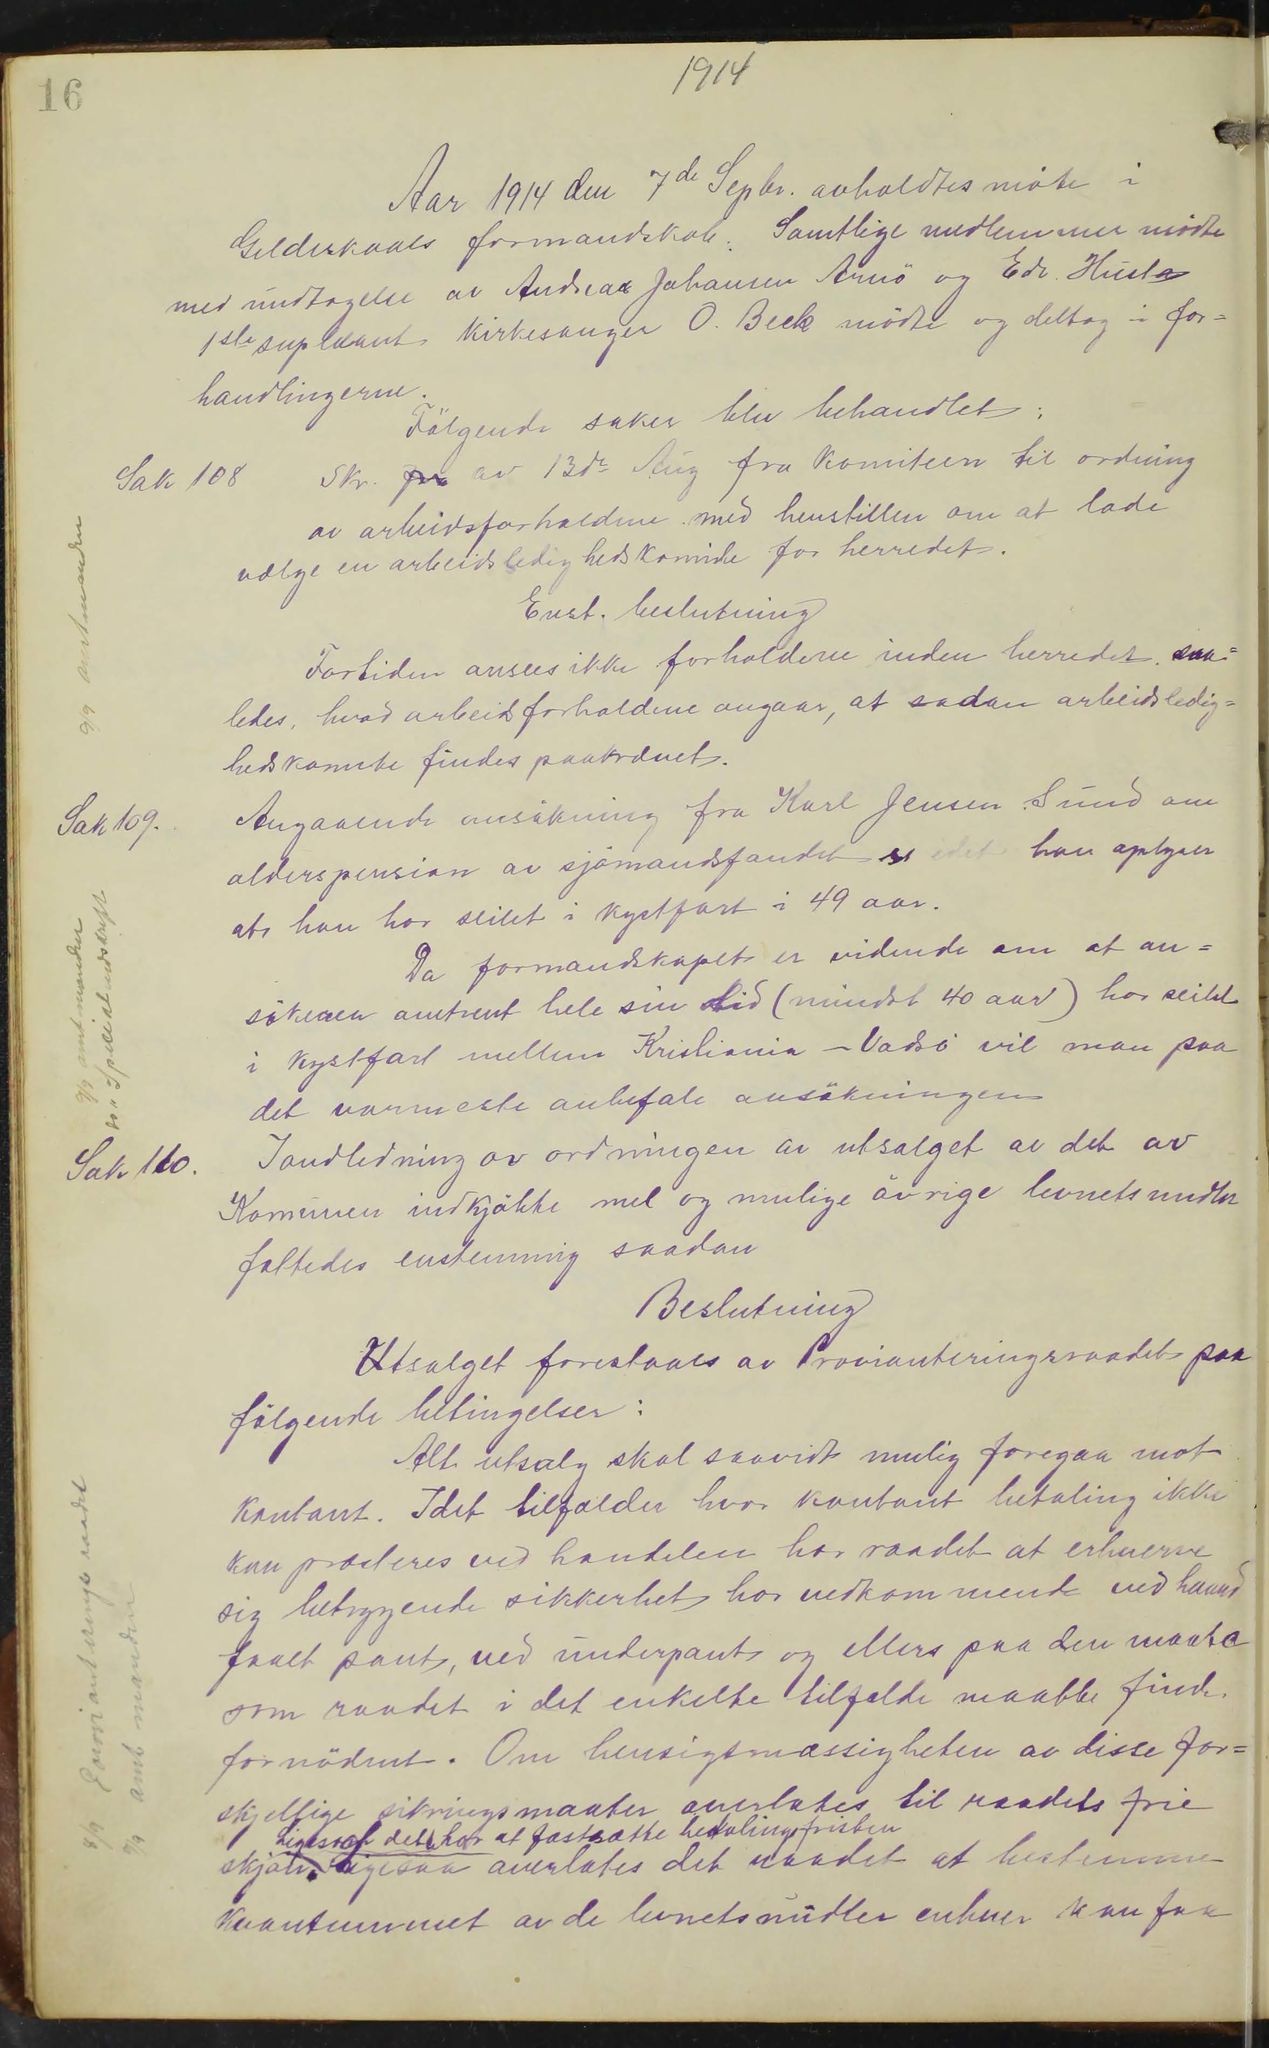 16
1914
Aar 1914 den 7de Sepbr. avholdtes möte i
Gildeskaals formandskab. Samtlige medlemmer mödte
med undtagelse av Andreas Johansen Arnö og Edv. Husby
1ste supleant Kirkesanger O. Beck mödte og deltog i for=
handlingerne.
Fölgende saker blev behandlet:
Sak 108 Skr. fra av 13de Aug fra Komiteen til ordning
av arbeidsforholdene med henstillen om at lade
vælge en arbeidsledighedskomite for herredet.
9/9 amtmanden
Enst. beslutning
Fortiden ansees ikke forholdene inden herredet saa=
ledes, hvad arbeidsforholdene angaar, at sadan arbeidsledig=
hedskomite findes paakrævet.
Sak 109. Angaaende ansökning fra Karl Jensen Sund om
alderspension av sjömandsfondet idet han oplyser
at han har seilet i kystfart i 49 aar.
9/9 amtmanden
som Specialudskrift
Da formandskapet er vidende om at an=
sökeren omtrent hele sin tid (mindst 40 aar) har seilet
i kystfart mellem Kristiania - Vadsö vil man paa
det varmeste anbefale ansökningen
Sak 110. I andledning av ordningen av utsalget av det av
Kommunen indkjöbte mel og mulige övrige levnetsmidler
fattedes enstemmig saadan
Beslutning
Utsalget forestaaes av Provianteringsraadet paa
fölgende betingelser:
Alt utsalg skal saavidt mulig foregaa mot
kontant. I det tilfælder hvor kontant betaling ikke
kan præsteres ved handelen har raadet at erhverve
sig betryggende sikkerhet hos vedkommende ved haand
faaet pant, ved underpant og ellers paa den maate
som raadet i det enkelte tilfælde maatte finde
fornödent. Om hensigtsmæssigheten av disse for=
8/9 Provianterings raadet
9/9 amtmanden
skjellige sikringsmaater overlates til raadets frie
ligesaa det har at fastsætte betalingsfristen
skjön. Ligesaa overlates det raadet at bestemme
kvantummet av de levnetsmidler enhver kan faa